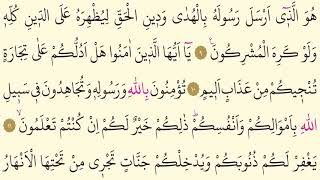 هُوَ الَّذٖٓي اَرْسَلَ رَسُولَهُ بِالْهُدٰى وَدٖينِ الْحَقِّ لِيُظْهِرَهُ عَلَى الدّٖينِ كُلِّهٖ
وَلَوْ كَرِهَ الْمُشْرِكُونَ ٩ يَٓا اَيُّهَا الَّذٖينَ اٰمَنُوا هَلْ اَدُلُّكُمْ عَلٰى تِجَارَةٍ
تُنْجٖيكُمْ مِنْ عَذَابٍ اَلٖيمٍ ١٠ تُؤْمِنُونَ بِاللّٰهِ وَرَسُولِهٖ وَتُجَاهِدُونَ فٖي سَبٖيلِ
اللّٰهِ بِاَمْوَالِكُمْ وَاَنْفُسِكُمْ ذٰلِكُمْ خَيْرٌ لَكُمْ اِنْ كُنْتُمْ تَعْلَمُونَ ١١
يَغْفِرْ لَكُمْ ذُنُوبَكُمْ وَيُدْخِلْكُمْ جَنَّاتٍ تَجْرٖي مِنْ تَحْتِهَا الْاَنْهَارُ